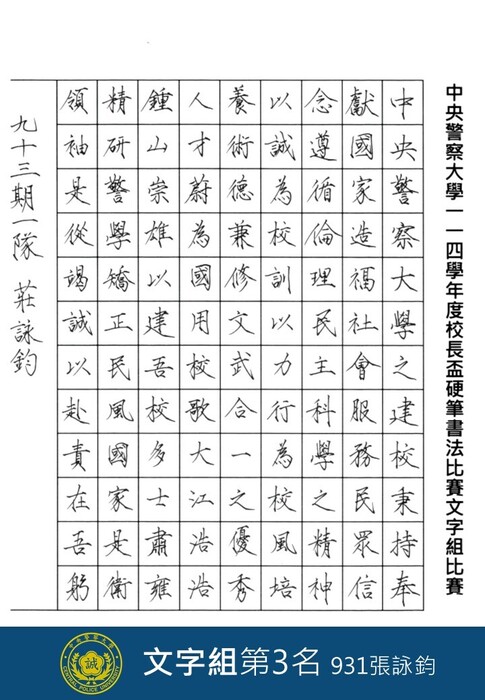 中央警察大學一一四學年度校長盃硬筆書法比賽文字組比賽
中央警察大學之建校秉持奉
獻國家造福社會服務民眾信
念遵循倫理民主科學之精神
以誠為校訓以力行為校風培
養術德兼修文武合一之優秀
人才蔚為國用校歌大江浩浩
鍾山崇雄以建吾校多士肅雍
精研警學矯正民風國家是衛
領袖是從竭誠以赴責在吾躬
九十三期一隊 莊詠鈞
誠
CENTRAL POLICE UNIVERSITY
文字組第3名 931張詠鈞